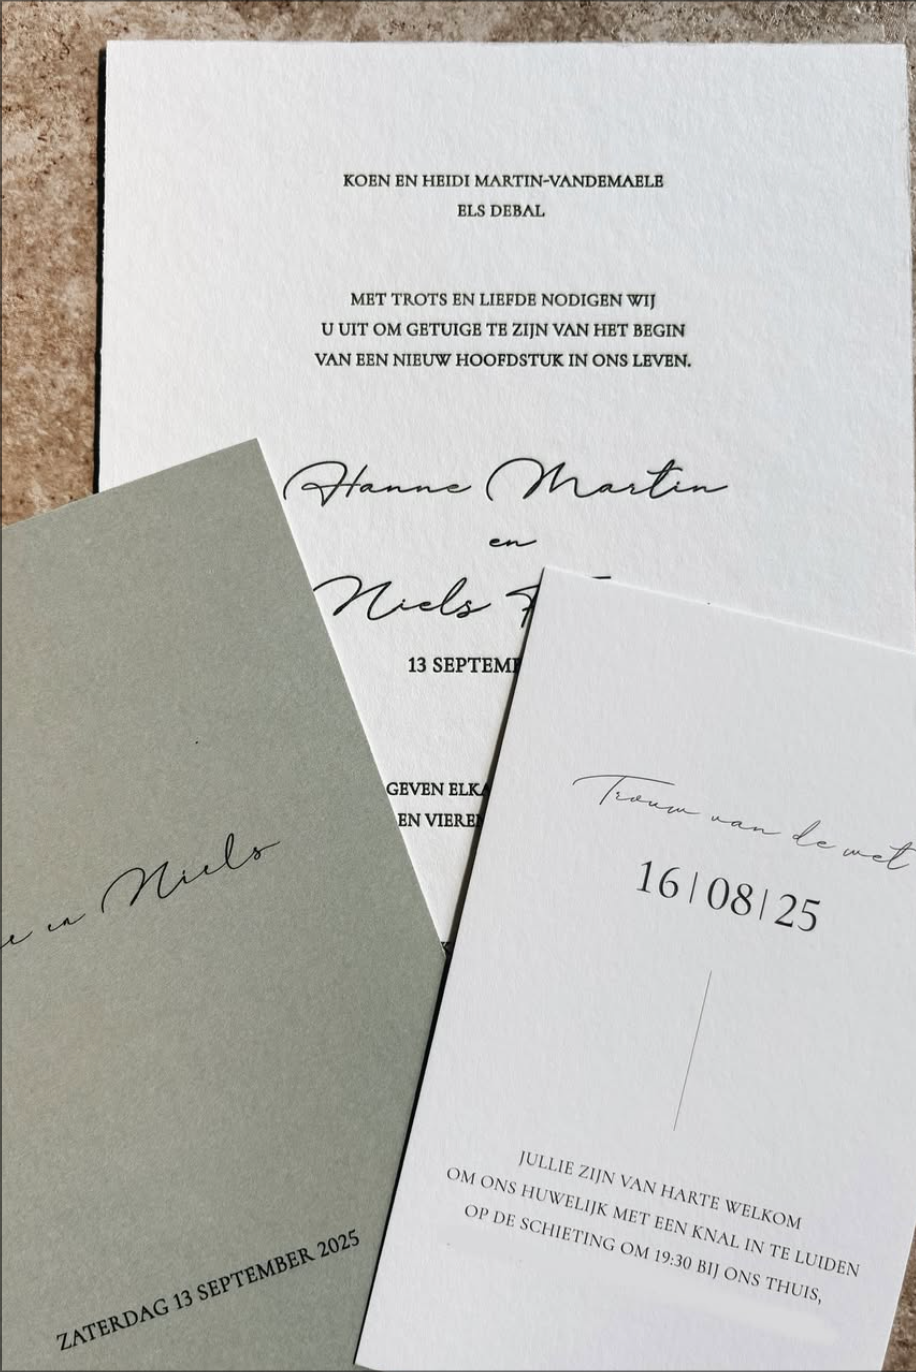 KOEN EN HEIDI MARTIN-VANDEMAELE
ELS DEBAL
MET TROTS EN LIEFDE NODIGEN WIJ
U UIT OM GETUIGE TE ZIJN VAN HET BEGIN
VAN EEN NIEUW HOOFDSTUK IN ONS LEVEN.
Hanne Martin
en
Niels
13
GEVEN
EN
en Niels
ZATERDAG 13 SEPTEMBER 2025
Trouw van de wet
16|08|25
JULLIE ZIJN VAN HARTE WELKOM
OM ONS HUWELIJK MET EEN KNAL IN TE LUIDEN
OP DE SCHIETING OM 19:30 BIJ ONS THUIS,